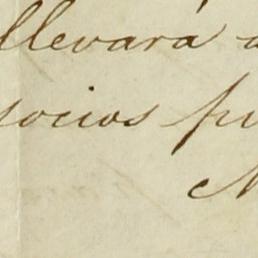 llevará a
socios pu